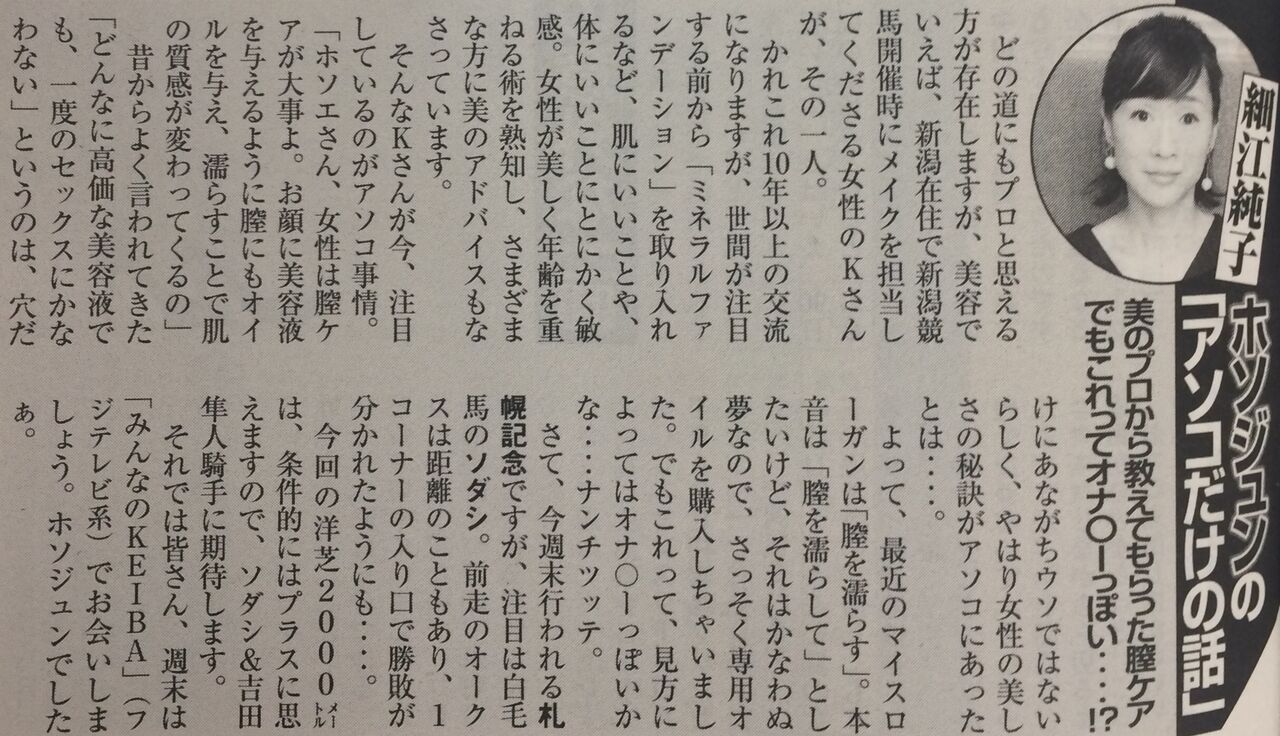 細江純子
ホソジュンの
「アソコだけの話」
美のプロから教えてもらった膣ケア
でもこれってオナ〇ーっぽい‥‥!?
どの道にもプロと思える
方が存在しますが、美容で
いえば、新潟在住で新潟競
馬開催時にメイクを担当し
てくださる女性のKさん
が、その一人。
かれこれ10年以上の交流
になりますが、世間が注目
する前から「ミネラルファ
ンデーション」を取り入れ
るなど、肌にいいことや、
体にいいことにとにかく敏
感。女性が美しく年齢を重
ねる術を熟知し、さまざま
な方に美のアドバイスもな
さっています。
そんなKさんが今、注目
しているのがアソコ事情。
「ホソエさん、女性は膣ケ
アが大事よ。お顔に美容液
を与えるように膣にもオイ
ルを与え、濡らすことで肌
の質感が変わってくるの」
昔からよく言われてきた
「どんなに高価な美容液で
も、一度のセックスにかな
わない」というのは、穴だ
けにあながちウソではない
らしく、やはり女性の美し
さの秘訣がアソコにあった
とは‥‥。
よって、最近のマイスロ
ーガンは「膣を濡らす」。本
音は「膣を濡らして」とし
たいけど、それはかなわぬ
夢なので、さっそく専用オ
イルを購入しちゃいまし
た。でもこれって、見方に
よってはオナ〇ーっぽいか
な‥‥ナンチッッテ。
さて、今週末行われる札
幌記念ですが、注目は白毛
馬のソダシ。前走のオーク
スは距離のこともあり、1
コーナーの入り口で勝敗が
分かれたようにも‥‥。
今回の洋芝2000メートル
は、条件的にはプラスに思
えますので、ソダシ&吉田
隼人騎手に期待します。
それでは皆さん、週末は
「みんなのKEIBA」(フ
ジテレビ系)でお会いしま
しょう。ホソジュンでした
ぁ。